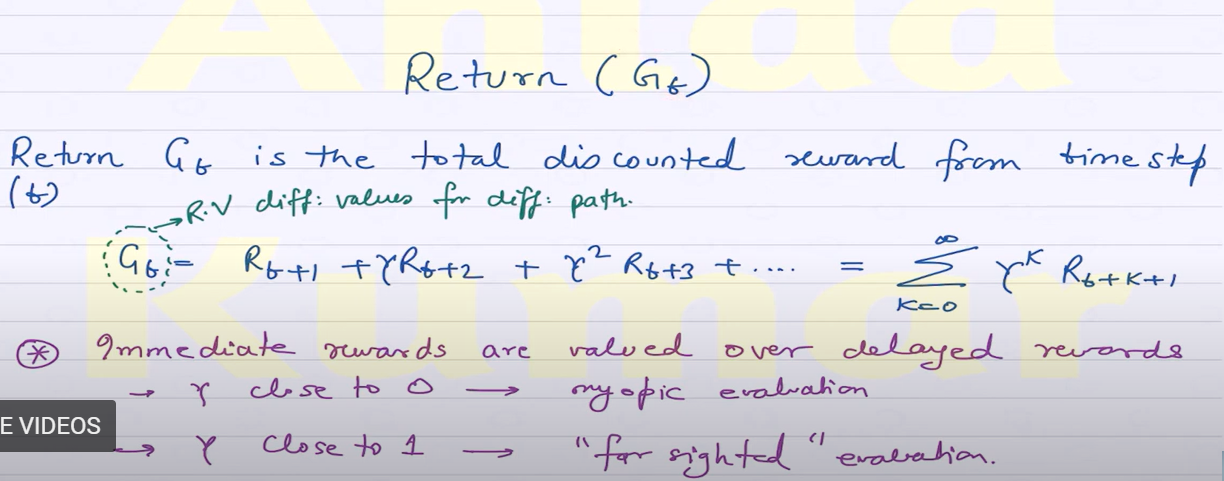 Return (Gt)
Return Gt is the total discounted reward from time step
(t)
R.V diff: values for diff: path.
Gt = Rt+1 + γRt+2 + γ² Rt+3 + .... = ∞∑K=0 γᴷ Rt+K+1
⊛ Immediate rewards are valued over delayed rewards
→ γ close to 0 → myopic evaluation
E VIDEOS
→ γ close to 1 → "far sighted" evaluation.
Kumar